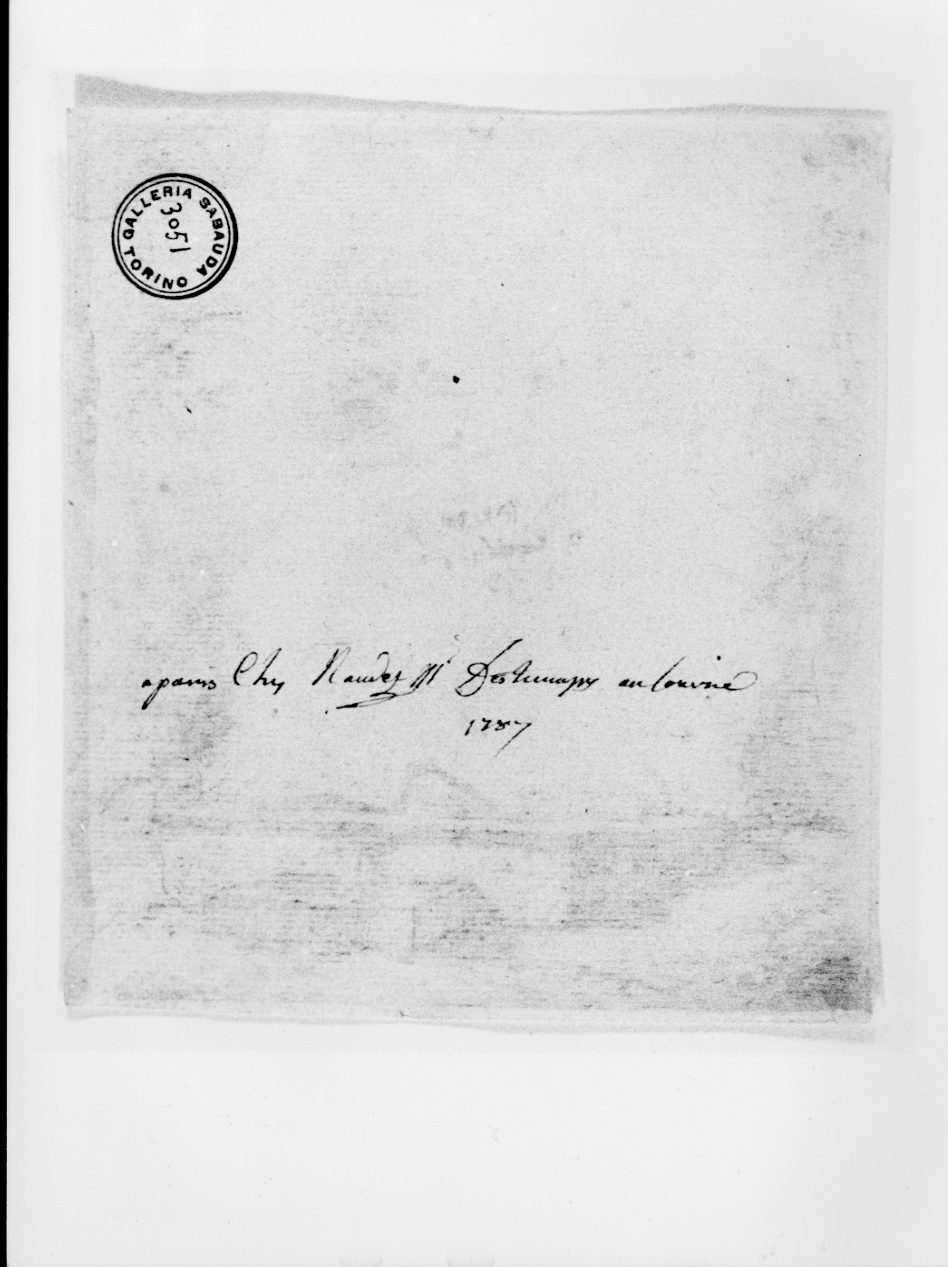 GALLERIA SABAUDA TORINO
3051
aparis Chez Naudet Md Destampes au louvre
1787